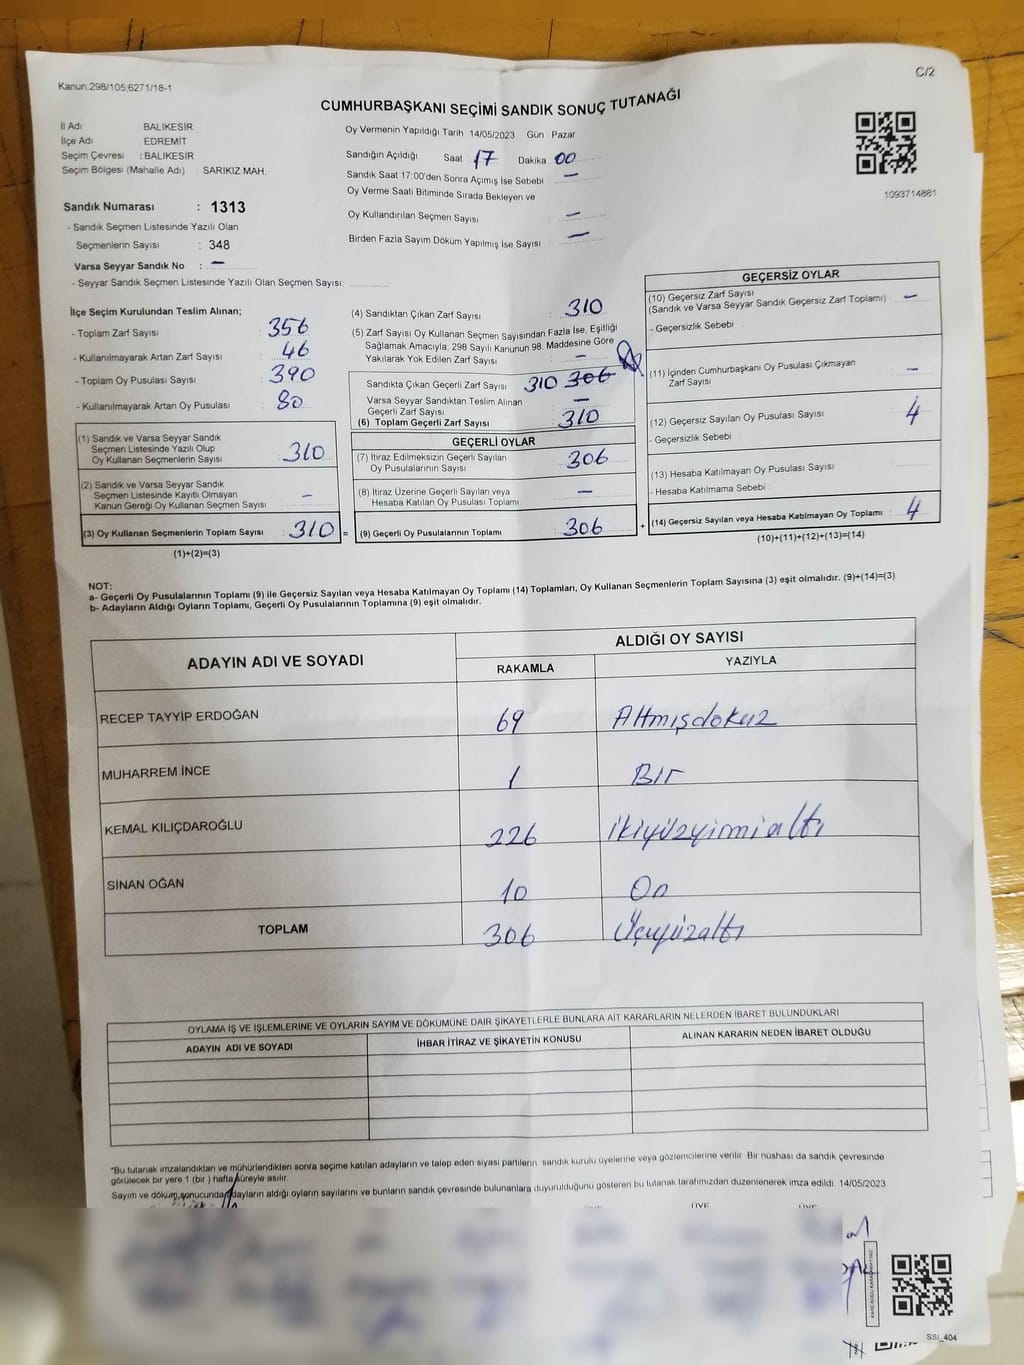 Kanun;298/105;6271/18-1
C/2
CUMHURBAŞKANI SEÇİMİ SANDIK SONUÇ TUTANAĞI
İl Adı : BALIKESİR
İlçe Adı : EDREMİT
Seçim Çevresi : BALIKESİR
Seçim Bölgesi (Mahalle Adı) : SARIKIZ MAH.
Sandık Numarası : 1313
- Sandık Seçmen Listesinde Yazılı Olan
Seçmenlerin Sayısı : 348
Varsa Seyyar Sandık No : —
- Seyyar Sandık Seçmen Listesinde Yazılı Olan Seçmen Sayısı:
Oy Vermenin Yapıldığı Tarih 14/05/2023 Gün Pazar
Sandığın Açıldığı Saat 17 Dakika 00
Sandık Saat 17:00'den Sonra Açımış İse Sebebi : —
Oy Verme Saati Bitiminde Sırada Bekleyen ve
Oy Kullandırılan Seçmen Sayısı : —
Birden Fazla Sayım Döküm Yapılmış İse Sayısı : —
1093714881
İlçe Seçim Kurulundan Teslim Alınan;
- Toplam Zarf Sayısı : 356
- Kullanılmayarak Artan Zarf Sayısı : 46
- Toplam Oy Pusulası Sayısı : 390
- Kullanılmayarak Artan Oy Pusulası : 80
(1) Sandık ve Varsa Seyyar Sandık
Seçmen Listesinde Yazılı Olup
Oy Kullanan Seçmenlerin Sayısı : 310
(2) Sandık ve Varsa Seyyar Sandık
Seçmen Listesinde Kayıtlı Olmayan
Kanun Gereği Oy Kullanan Seçmen Sayısı : —
(3) Oy Kullanan Seçmenlerin Toplam Sayısı : 310 =
(1)+(2)=(3)
(4) Sandıktan Çıkan Zarf Sayısı : 310
(5) Zarf Sayısı Oy Kullanan Seçmen Sayısından Fazla İse, Eşitliği
Sağlamak Amacıyla, 298 Sayılı Kanunun 98. Maddesine Göre
Yakılarak Yok Edilen Zarf Sayısı : —
Sandıkta Çıkan Geçerli Zarf Sayısı 310 306
Varsa Seyyar Sandıktan Teslim Alınan
Geçerli Zarf Sayısı : —
(6) Toplam Geçerli Zarf Sayısı : 310
GEÇERLİ OYLAR
(7) İtiraz Edilmeksizin Geçerli Sayılan
Oy Pusulalarının Sayısı : 306
(8) İtiraz Üzerine Geçerli Sayılan veya
Hesaba Katılan Oy Pusulası Toplamı : —
(9) Geçerli Oy Pusulalarının Toplamı : 306 +
GEÇERSİZ OYLAR
(10) Geçersiz Zarf Sayısı
(Sandık ve Varsa Seyyar Sandık Geçersiz Zarf Toplamı) : —
- Geçersizlik Sebebi :
(11) İçinden Cumhurbaşkanı Oy Pusulası Çıkmayan
Zarf Sayısı : —
(12) Geçersiz Sayılan Oy Pusulası Sayısı : 4
- Geçersizlik Sebebi :
(13) Hesaba Katılmayan Oy Pusulası Sayısı :
- Hesaba Katılmama Sebebi :
(14) Geçersiz Sayılan veya Hesaba Katılmayan Oy Toplamı : 4
(10)+(11)+(12)+(13)=(14)
NOT:
a- Geçerli Oy Pusulalarının Toplamı (9) ile Geçersiz Sayılan veya Hesaba Katılmayan Oy Toplamı (14) Toplamları, Oy Kullanan Seçmenlerin Toplam Sayısına (3) eşit olmalıdır. (9)+(14)=(3)
b- Adayların Aldığı Oyların Toplamı, Geçerli Oy Pusulalarının Toplamına (9) eşit olmalıdır.
ADAYIN ADI VE SOYADI
ALDIĞI OY SAYISI
RAKAMLA YAZIYLA
RECEP TAYYİP ERDOĞAN 69 Altmışdokuz
MUHARREM İNCE 1 Bir
KEMAL KILIÇDAROĞLU 226 ikiyüzyirmialtı
SİNAN OĞAN 10 On
TOPLAM 306 Üçyüzaltı
OYLAMA İŞ VE İŞLEMLERİNE VE OYLARIN SAYIM VE DÖKÜMÜNE DAİR ŞİKAYETLERLE BUNLARA AİT KARARLARIN NELERDEN İBARET BULUNDUKLARI
ADAYIN ADI VE SOYADI İHBAR İTİRAZ VE ŞİKAYETİN KONUSU ALINAN KARARIN NEDEN İBARET OLDUĞU
*Bu tutanak imzalandıktan ve mühürlendikten sonra seçime katılan adayların ve talep eden siyasi partilerin sandık kurulu üyelerine veya gözlemcilerine verilir. Bir nüshası da sandık çevresinde
görülecek bir yere 1 (bir) hafta süreyle asılır.
Sayım ve döküm sonucunda adayların aldığı oyların sayılarını ve bunların sandık çevresinde bulunanlara duyurulduğunu gösteren bu tutanak tarafımızdan düzenlenerek imza edildi. 14/05/2023
ÜYE ÜYE
SSI_404